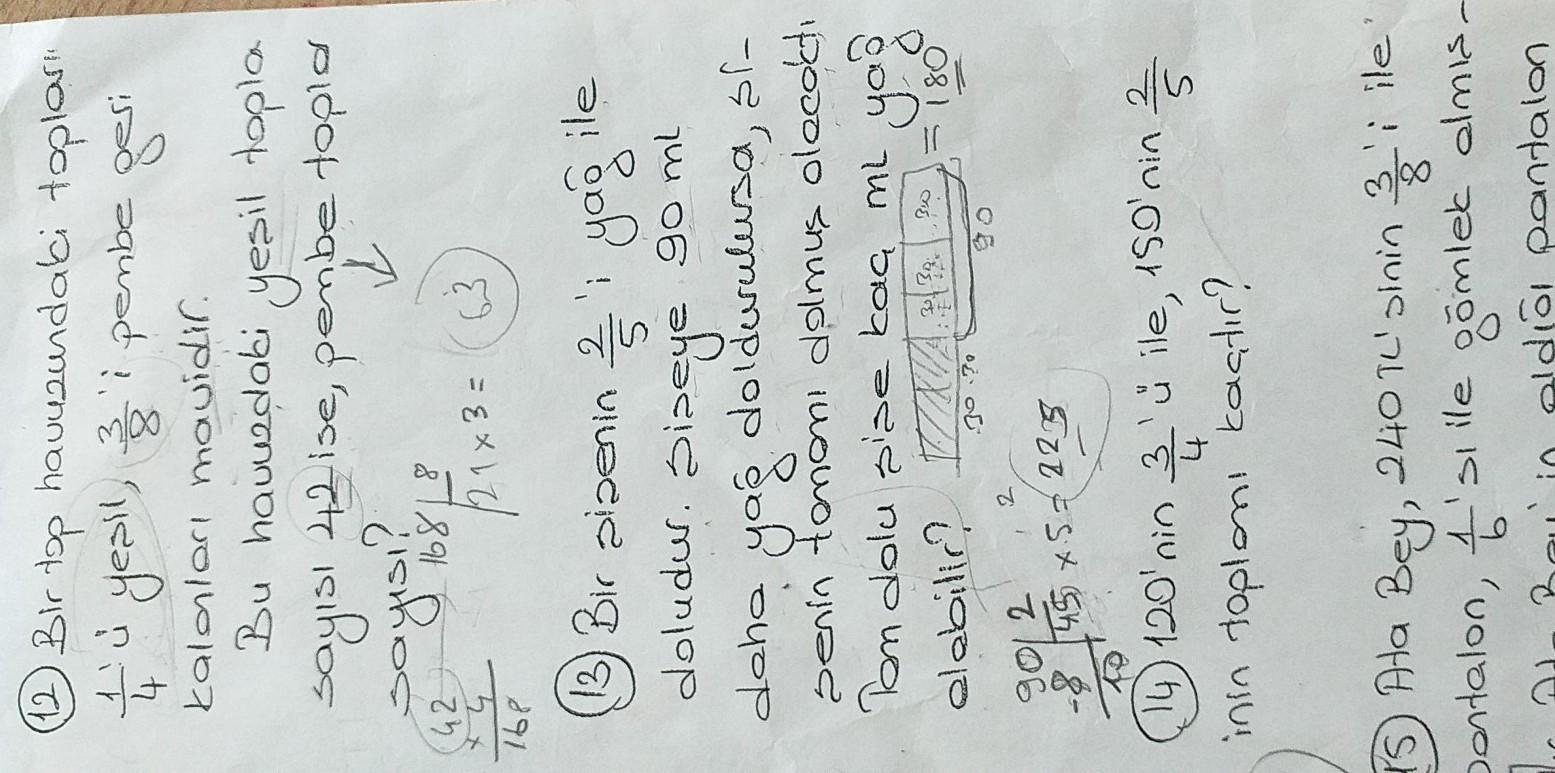 12 Bir top havuzundaki topları
1/4'ü yeşil, 3/8'i pembe gesi
kalanları mavidir.
Bu havuzdaki yeşil topla
sayısı 42 ise, pembe topla
sayısı?
42 x 4 168
168 | 8
21 x 3 = 63
13 Bir şişenin 2/5'i yağ ile
doludur. Şişeye 90 ml
daha yağ doldurulursa, şi-
şenin tamamı dolmuş olacaktı
Tam dolu şişe kaç ml yağ
alabilir?
30 30 30 = 180
30 30 90
90 | 2
-8 45 x 5 = 225
10
14 120'nin 3/4'ü ile, 150'nin 2/5
inin toplamı kaçtır?
15 Ata Bey, 240 TL'sinin 3/8'i ile
pantalon, 1/6'sı ile gömlek almış-
aldığı pantalon